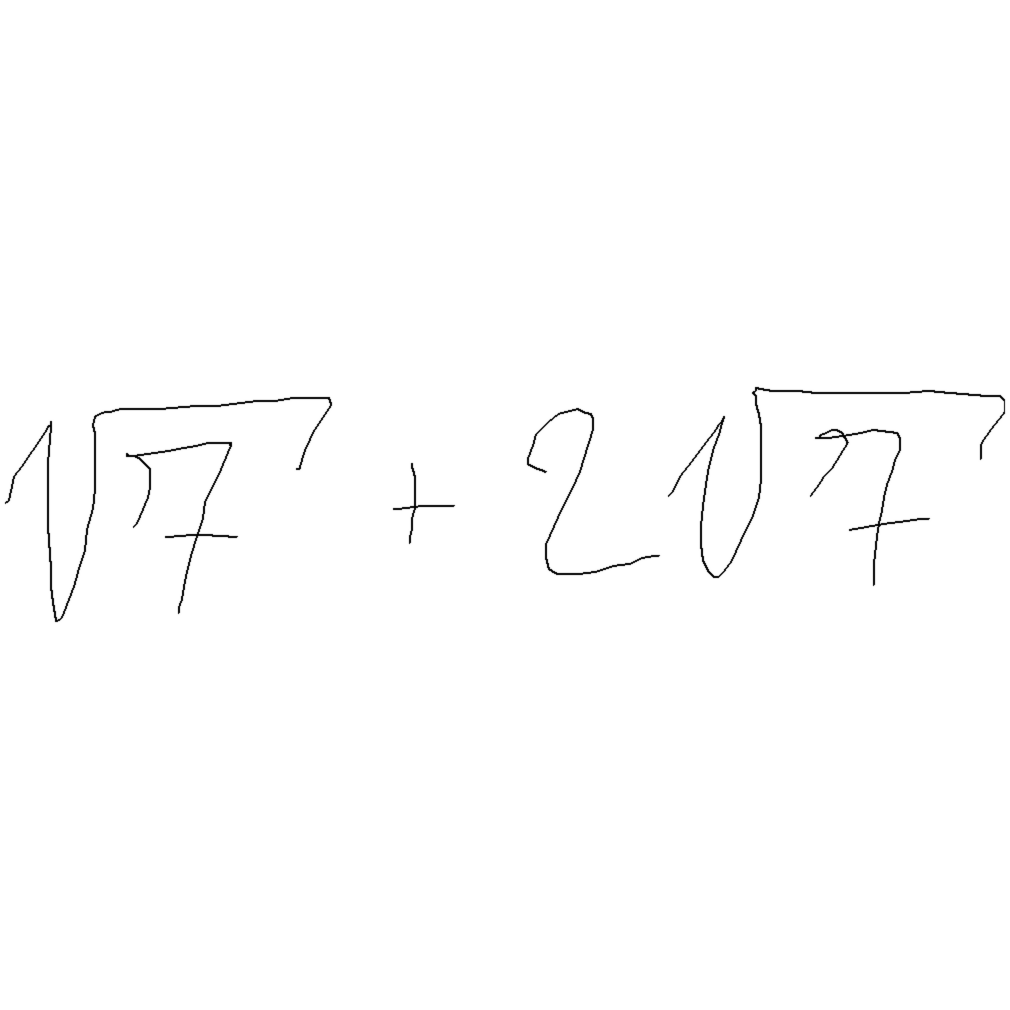 √7 + 2√7